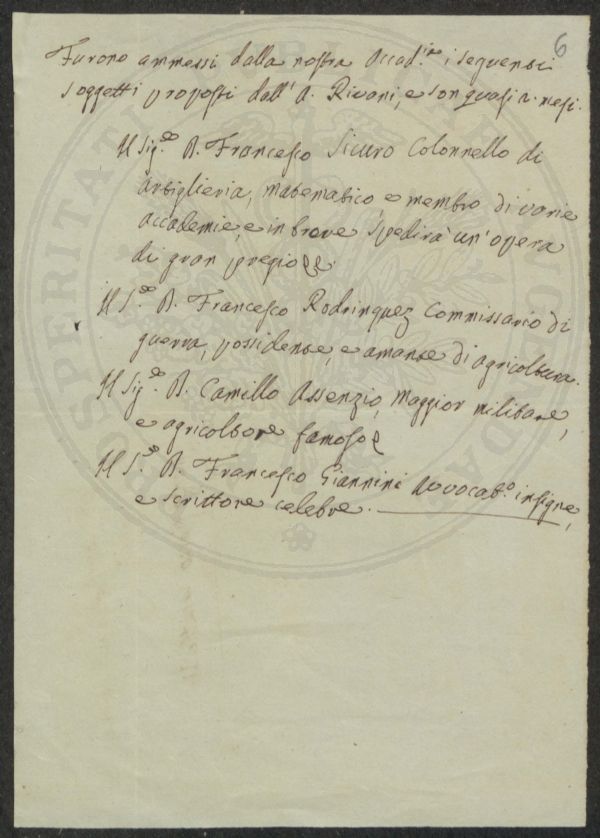 6
Furono ammessi dalla nostra Accad.ia i seguenti
soggetti proposti dall'A. Rivani, e son quasi 2. mesi.
Il Sig.e D. Francesco Sicuro Colonnello di
Artiglieria, matematico, e membro di varie
accademie, e in breve spedirà un'opera
di gran pregio
Il S.e D. Francesco Rodrinquez Commissario di
guerra, possidente, e amante di agricoltura.
Il Sig.e D. Camillo Assenzio, Maggior militare,
e agricoltore famoso
Il S.e D. Francesco Giannini Avvocato insigne,
e scrittore celebre.
PROSPERITATI PUBLICAE AUGENDAE